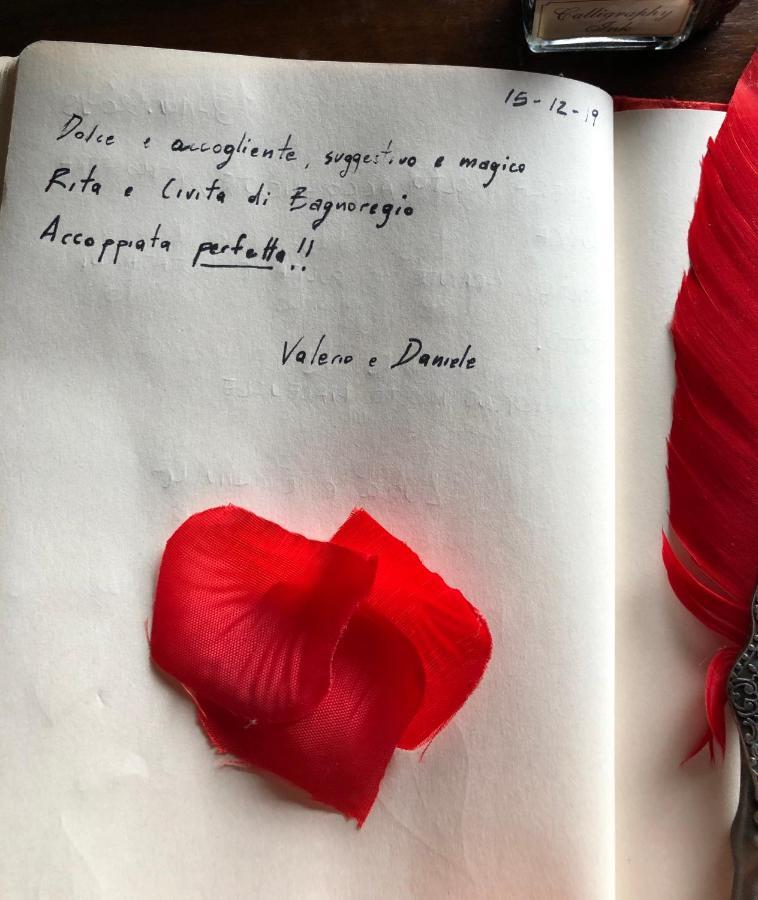 Calligraphy
Ink
15-12-19
Dolce e accogliente, suggestivo e magico
Rita e Civita di Bagnoregio
Accoppiata perfetta!!
Valerio e Daniele